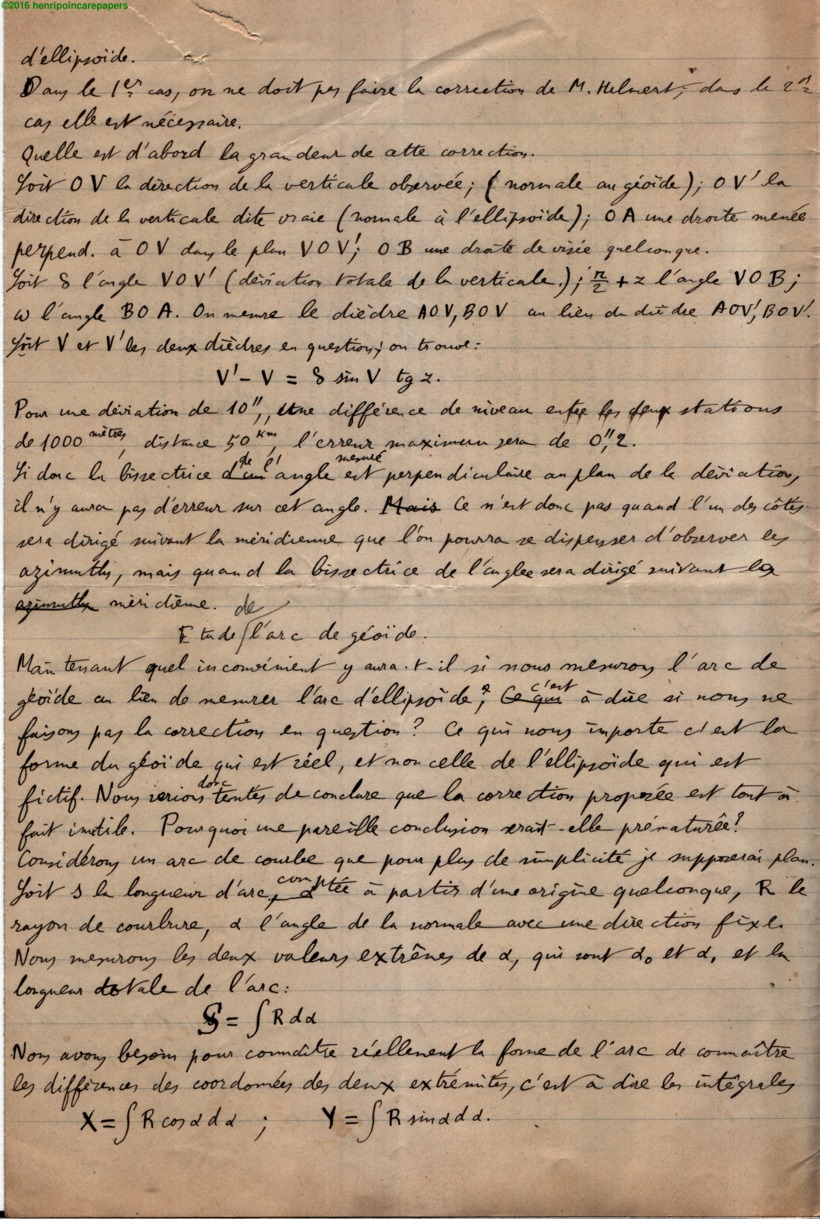 ©2016 henripoincarepapers
d'ellipsoïde.
Dans le 1er cas, on ne doit pas faire la correction de M. Helmert, dans le 2d
cas elle est nécessaire.
Quelle est d'abord la grandeur de cette correction.
Soit OV la direction de la verticale observée; (normale au géoïde); OV' la
direction de la verticale dite vraie (normale à l'ellipsoïde); OA une droite menée
perpend. à OV dans le plan VOV'; OB une droite de visée quelconque.
Soit δ l'angle VOV' (déviation totale de la verticale); π/2 + z l'angle VOB;
ω l'angle BOA. On mesure le dièdre AOV, BOV au lieu du dièdre AOV', BOV'.
Soit V et V' les deux dièdres en question; on trouve:
V' - V = δ sin V tg z.
Pour une déviation de 10'', une différence de niveau entre les deux stations
de 1000 mètres, distance 50 km, l'erreur maximum sera de 0'',2.
Si donc la bissectrice de l'angle mesuré est perpendiculaire au plan de la déviation,
il n'y aura pas d'erreur sur cet angle. Mais Ce n'est donc pas quand l'un des côtés
sera dirigé suivant la méridienne que l'on pourra se dispenser d'observer les
azimuths, mais quand la bissectrice de l'angle sera dirigé suivant la
azimuths méridienne.
Etude de l'arc de géoïde.
Maintenant quel inconvénient y aura-t-il si nous mesurons l'arc de
géoïde au lieu de mesurer l'arc d'ellipsoïde, Ce qui c'est à dire si nous ne
faisons pas la correction en question? Ce qui nous importe c'est la
forme du géoïde qui est réel, et non celle de l'ellipsoïde qui est
fictif. Nous serions donc tentés de conclure que la correction proposée est tout à
fait inutile. Pourquoi une pareille conclusion serait-elle prématurée?
Considérons un arc de courbe que pour plus de simplicité je supposerai plan.
Soit s la longueur d'arc, comptée à partir d'une origine quelconque, R le
rayon de courbure, α l'angle de la normale avec une direction fixe.
Nous mesurons les deux valeurs extrêmes de α, qui sont α₀ et α₁ et la
longueur totale de l'arc:
S = ∫ R dα
Nous avons besoin pour connaître réellement la forme de l'arc de connaître
les différences des coordonnées des deux extrémités, c'est à dire les intégrales
X = ∫ R cos α dα ; Y = ∫ R sin α dα.